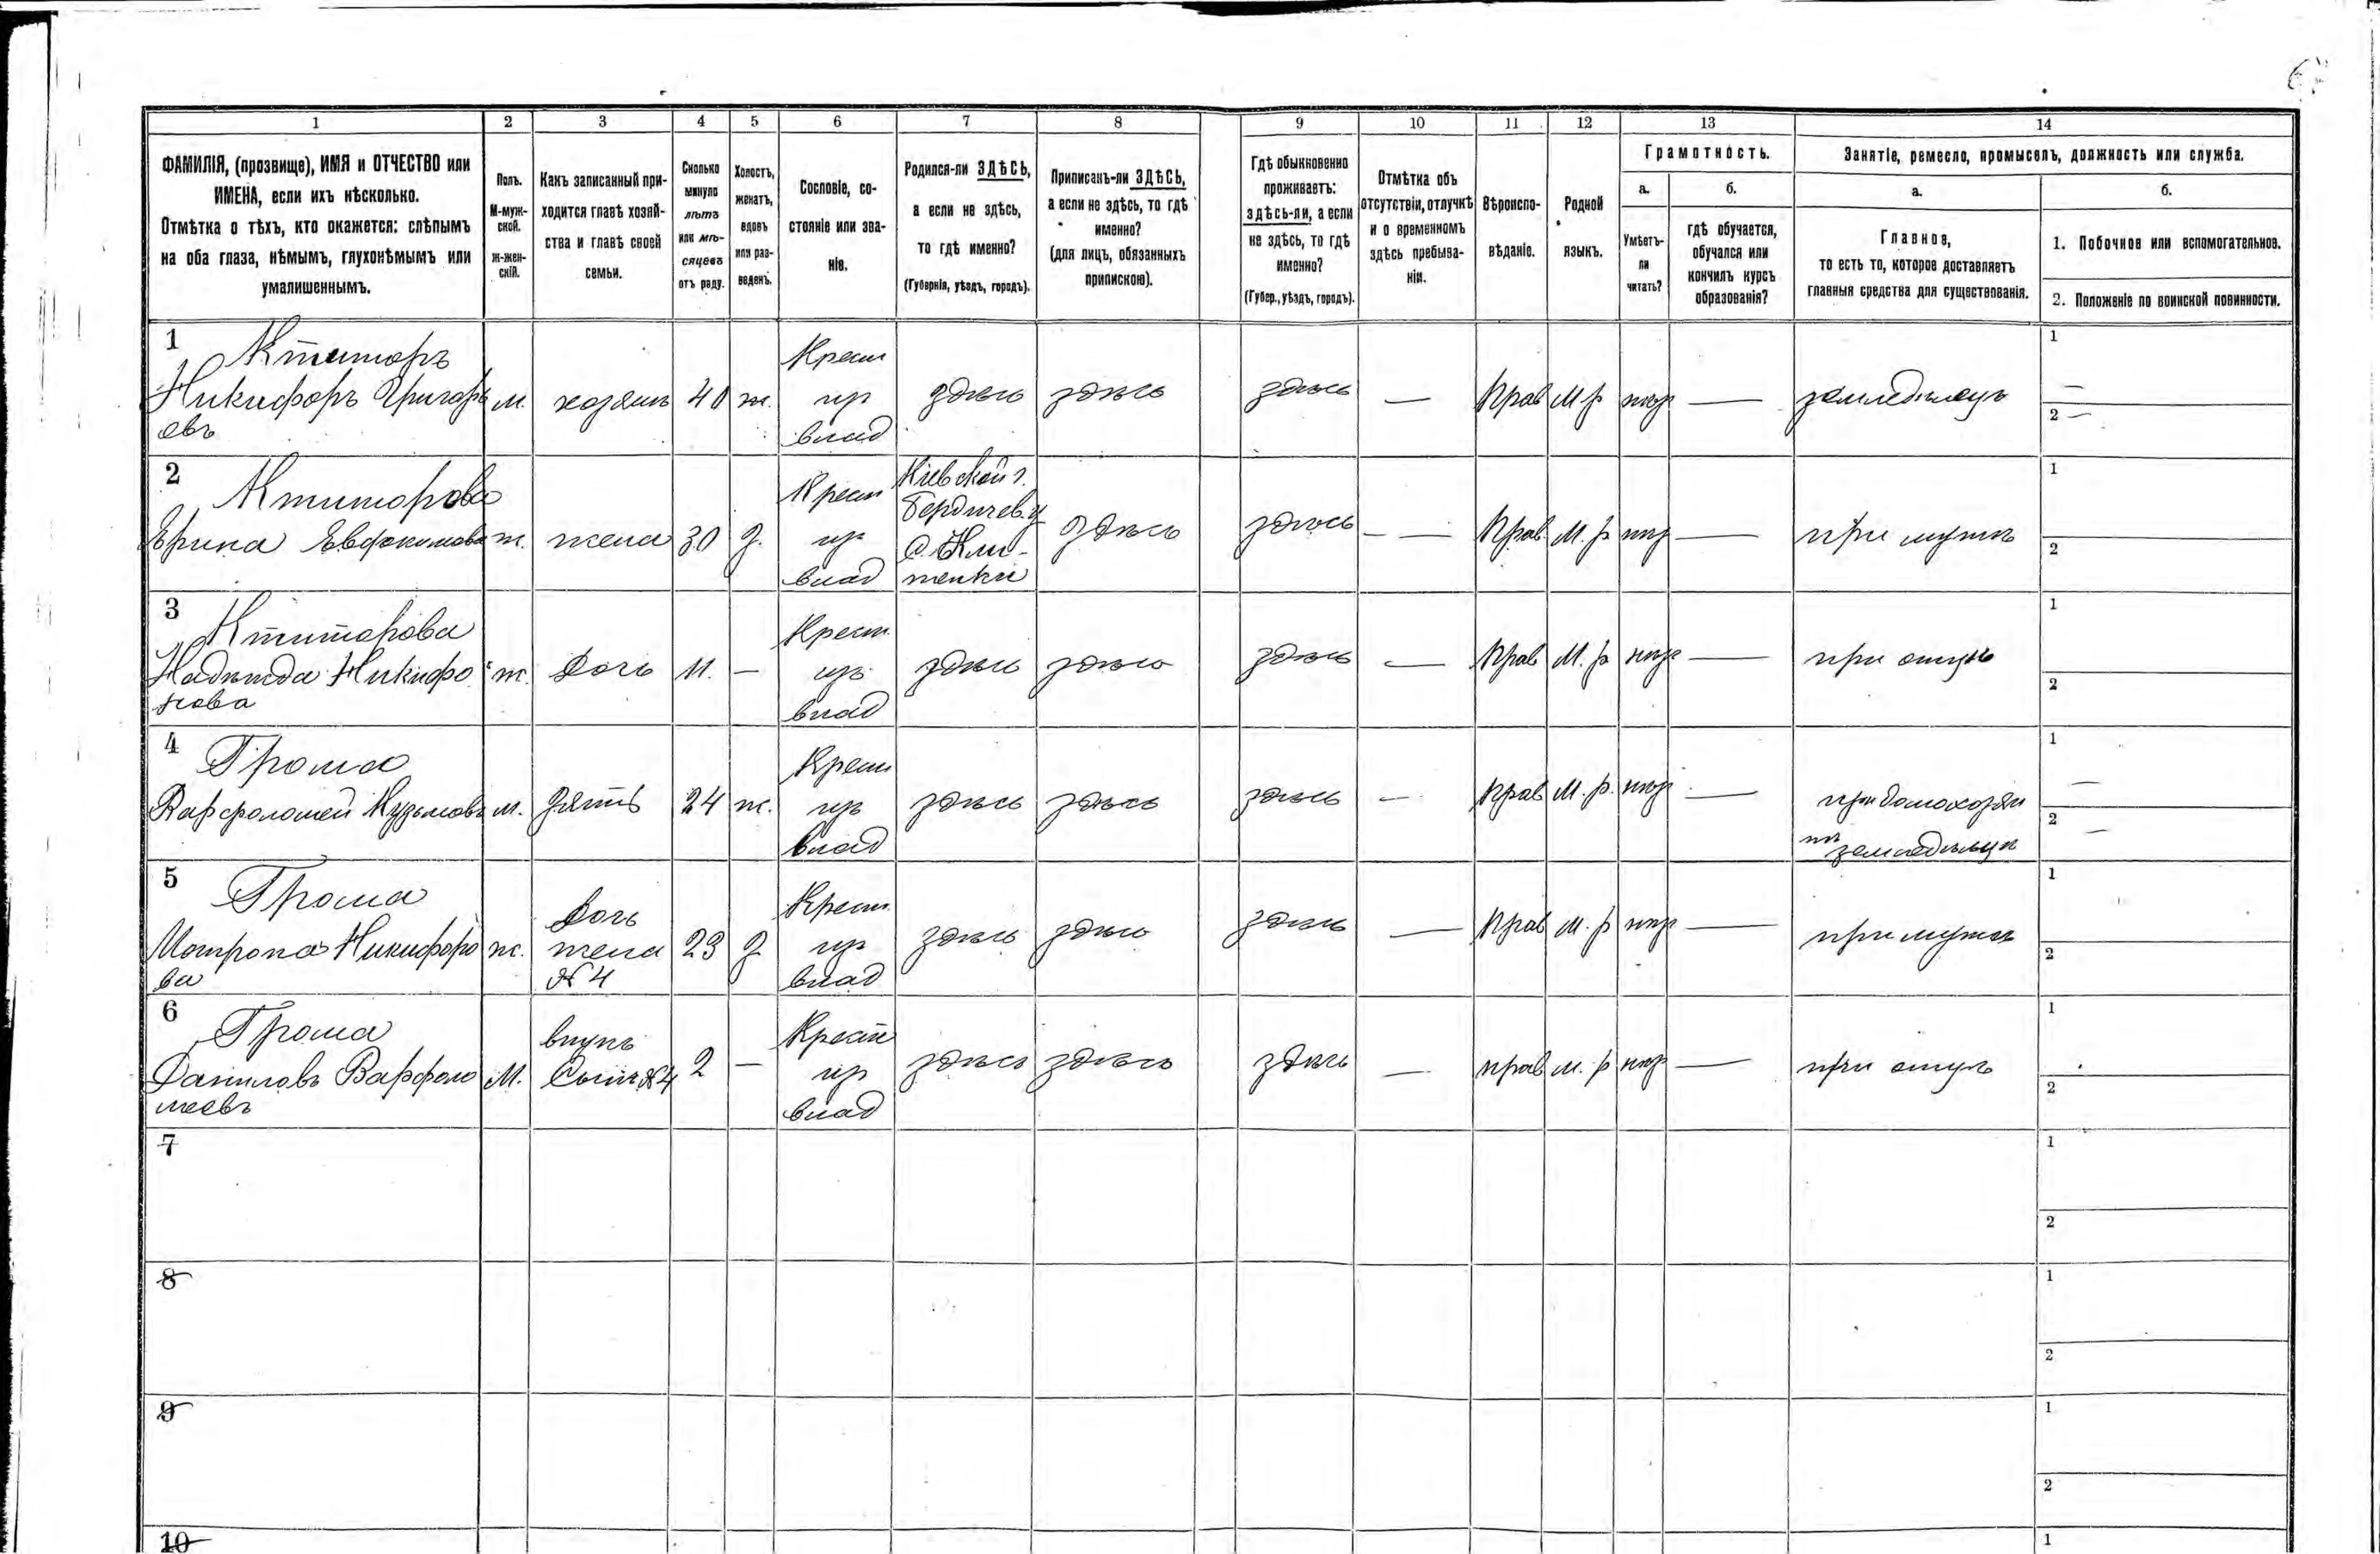 1 2 3 4 5 6 7 8 9 10 11 12 13 14
ФАМИЛІЯ, (прозвище), ИМЯ и ОТЧЕСТВО или
ИМЕНА, если ихъ нѣсколько.
Отмѣтка о тѣхъ, кто окажется: слѣпымъ
на оба глаза, нѣмымъ, глухонѣмымъ или
умалишеннымъ.
Полъ.
М-муж-
ской.
ж-жен-
скій.
Какъ записанный при-
ходится главѣ хозяй-
ства и главѣ своей
семьи.
Сколько
минуло
лѣтъ
или мѣ-
сяцевъ
отъ роду.
Холостъ,
женатъ,
вдовъ
или раз-
веденъ.
Сословіе, со-
стояніе или зва-
ніе.
Родился-ли ЗДѢСЬ,
а если не здѣсь,
то гдѣ именно?
(Губернія, уѣздъ, городъ).
Приписанъ-ли ЗДѢСЬ,
а если не здѣсь, то гдѣ
именно?
(для лицъ, обязанныхъ
припискою).
Гдѣ обыкновенно
проживаетъ:
здѣсь-ли, а если
не здѣсь, то гдѣ
именно?
(Губер., уѣздъ, городъ).
Отмѣтка объ
отсутствіи, отлучкѣ
и о временномъ
здѣсь пребыва-
ніи.
Вѣроиспо-
вѣданіе.
Родной
языкъ.
Грамотность.
а.
Умѣетъ-
ли
читать?
б.
гдѣ обучается,
обучался или
кончилъ курсъ
образованія?
Занятіе, ремесло, промыселъ, должность или служба.
а.
Главное,
то есть то, которое доставляетъ
главныя средства для существованія.
б.
1. Побочное или вспомогательное.
2. Положеніе по воинской повинности.
1 Ктиторъ
Никифоръ Григорь
евъ
м. хозяинъ 40 ж.
Крест
из
влад
здѣсь здѣсь здѣсь — Прав М р нѣт — земледѣлецъ
1 —
2 —
2 Ктиторова
Ярина Евдокимова
ж. жена 30 з.
Крест
из
влад
Кіевской г.
Бердичев. у
здѣсь здѣсь — Прав М. р нѣт — при мужѣ
1
2
3 Ктиторова
Надежда Никифо
рова
ж. дочь 11. —
Крест
из
влад
здѣсь здѣсь здѣсь — Прав М. р нѣт — при отцѣ
1
2
4 Грома
Варфоломей Кузьмовъ
м. зять 24 ж.
Крест
из
влад
здѣсь здѣсь здѣсь — Прав М. р. нѣт —
при домохозяи
нѣ земледѣльцѣ
1 —
2 —
5 Грома
Мотрона Никифоро
ва
ж.
дочь
жена
№ 4
23 з
Крест
из
влад
здѣсь здѣсь здѣсь — Прав М. р нѣт — при мужѣ
1
2
6 Грома
Данилов Варфоло
меевъ
М.
внукъ
Сынъ №4
2 —
Крест
из
влад
здѣсь здѣсь здѣсь — прав м. р нѣт — при отцѣ
1
2
7
1
2
8
1
2
9
1
2
10
1